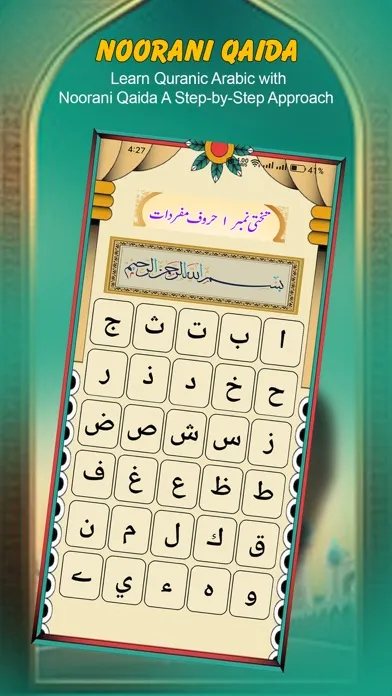 NOORANI QAIDA
Learn Quranic Arabic with
Noorani Qaida A Step-by-Step Approach
4:27 41%
تختی نمبر ۱ حروف مفردات
بسم الله الرحمن الرحيم
ا ب ت ث ج
ح خ د ذ ر
ز س ش ص ض
ط ظ ع غ ف
ق ك ل م ن
و ه ء ي ے